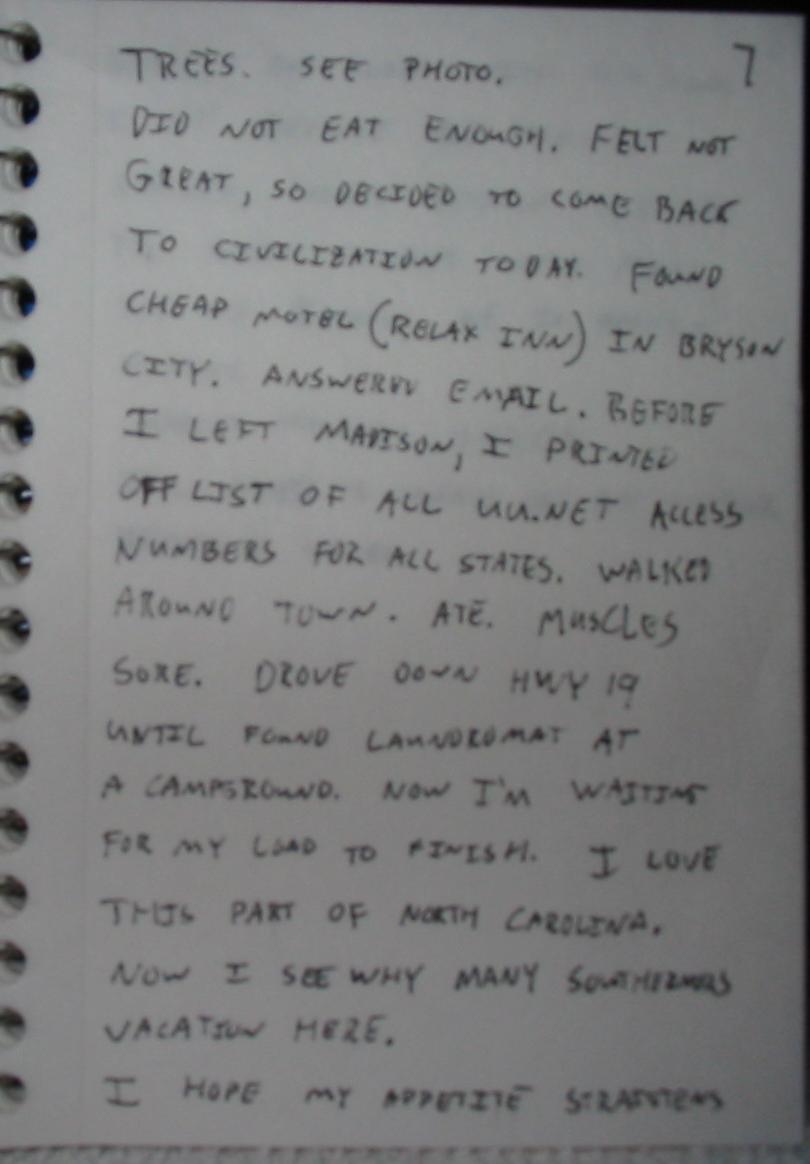 7
TREES. SEE PHOTO.
DID NOT EAT ENOUGH. FELT NOT
GREAT, SO DECIDED TO COME BACK
TO CIVILIZATION TODAY. FOUND
CHEAP MOTEL (RELAX INN) IN BRYSON
CITY. ANSWERED EMAIL. BEFORE
I LEFT MADISON, I PRINTED
OFF LIST OF ALL UU.NET ACCESS
NUMBERS FOR ALL STATES. WALKED
AROUND TOWN. ATE. MUSCLES
SORE. DROVE DOWN HWY 19
UNTIL FOUND LAUNDROMAT AT
A CAMPGROUND. NOW I'M WAITING
FOR MY LOAD TO FINISH. I LOVE
THIS PART OF NORTH CAROLINA.
NOW I SEE WHY MANY SOUTHERNERS
VACATION HERE.
I HOPE MY APPETITE